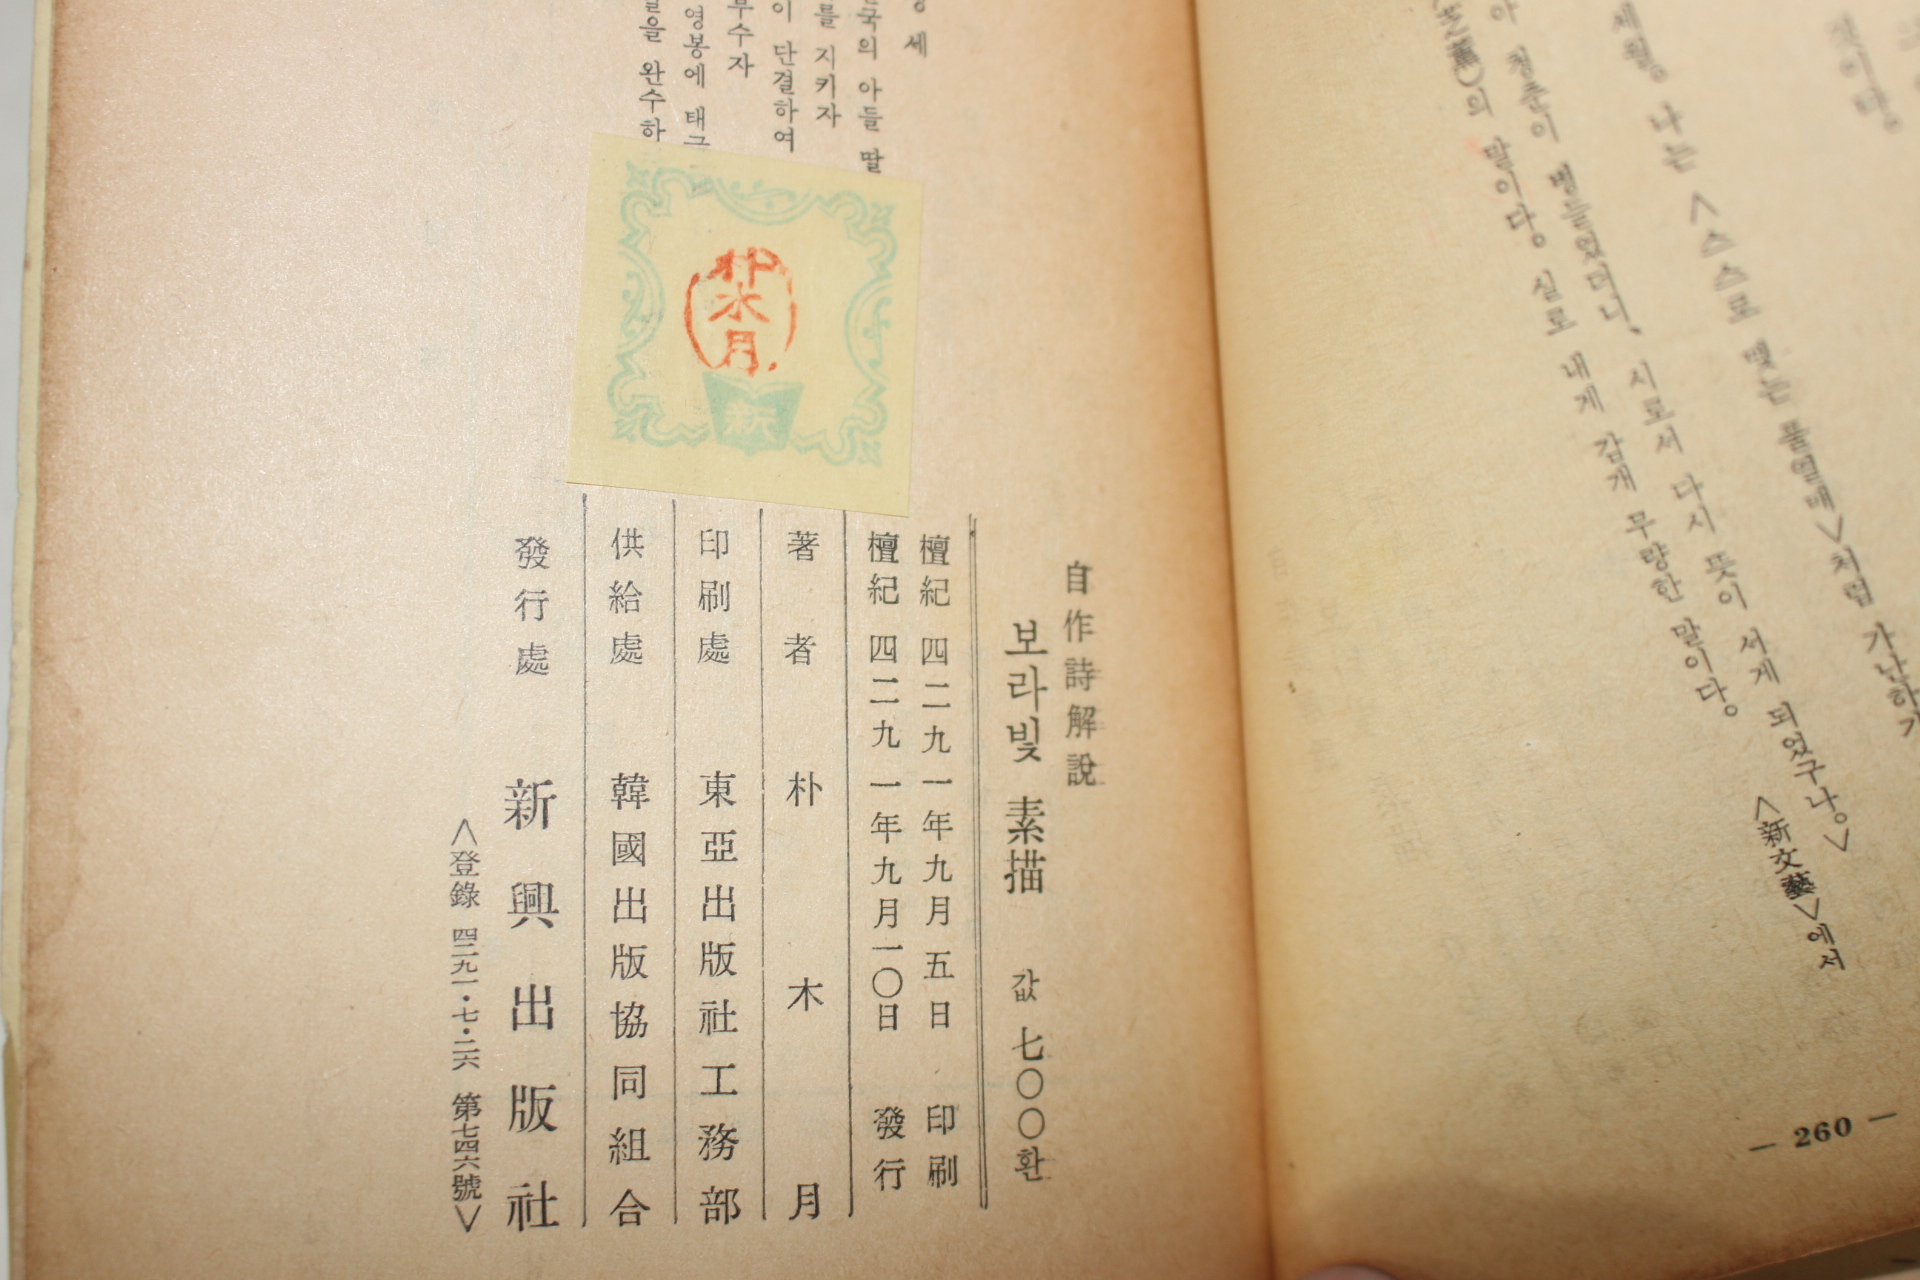 것이다。
세월。 나는 <스스로 맺는 풀열매>처럼 가난하
아 청춘이 병들었더니、 시로서 다시 뜻이 서게 되었구나。>
의 말이다。 실로 내게 감개 무량한 말이다。
<新文藝>에서
— 260 —
세
국의 아들 딸
를 지키자
이 단결하여
부수자
영봉에 태극
을 완수하
朴木月
新
自作詩解說
보라빛 素描 값 七〇〇환
檀紀 四二九一年九月 五日 印刷
檀紀 四二九一年九月一〇日 發行
著者 朴木月
印刷處 東亞出版社工務部
供給處 韓國出版協同組合
發行處 新興出版社
<登錄 四二九一·七·二六 第七四六號>